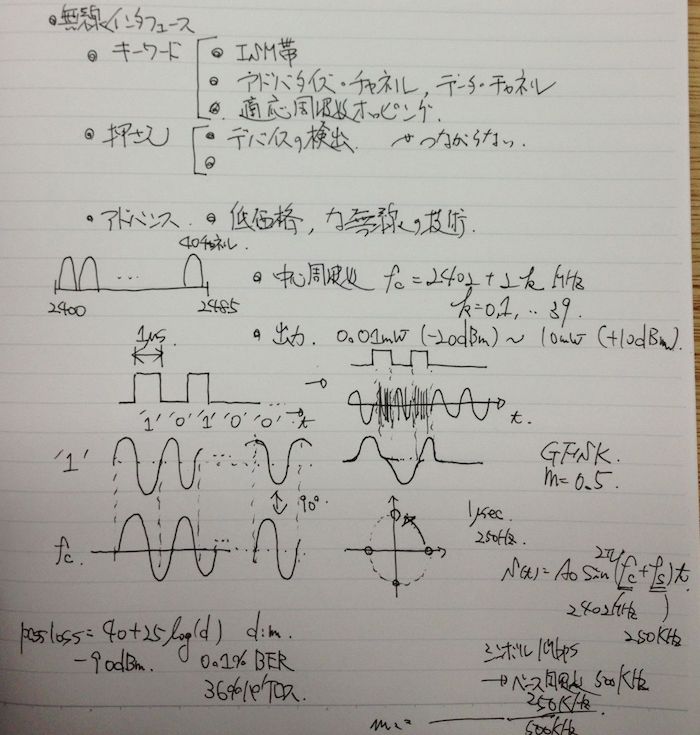 無線インタフェース
キーワード
ISM帯
アドバタイズ・チャネル, データ・チャネル
適応周波数ホッピング.
押さえ
デバイスの検出. つながらない.
アドバンス. 低価格, な無線の技術.
40チャネル.
2400 ... 2485
中心周波数 fc = 2402 + 2k MHz
k=0,1, .. 39.
出力. 0.01mW (-20dBm) ~ 10mW (+10dBm).
1μs
'1' '0' '1' '0' '0' t
t.
'1'
GFSK.
m=0.5.
90°
fc
1μsec.
250Hz.
2π
(t) = A0 sin (fc + fs) t.
2402MHz
250KHz
pass loss = 40+25 log(d) d:m.
-90dBm. 0.1% BER
シンボル 1Mbps
→ベース周波数 500KHz
250KHz
500KHz